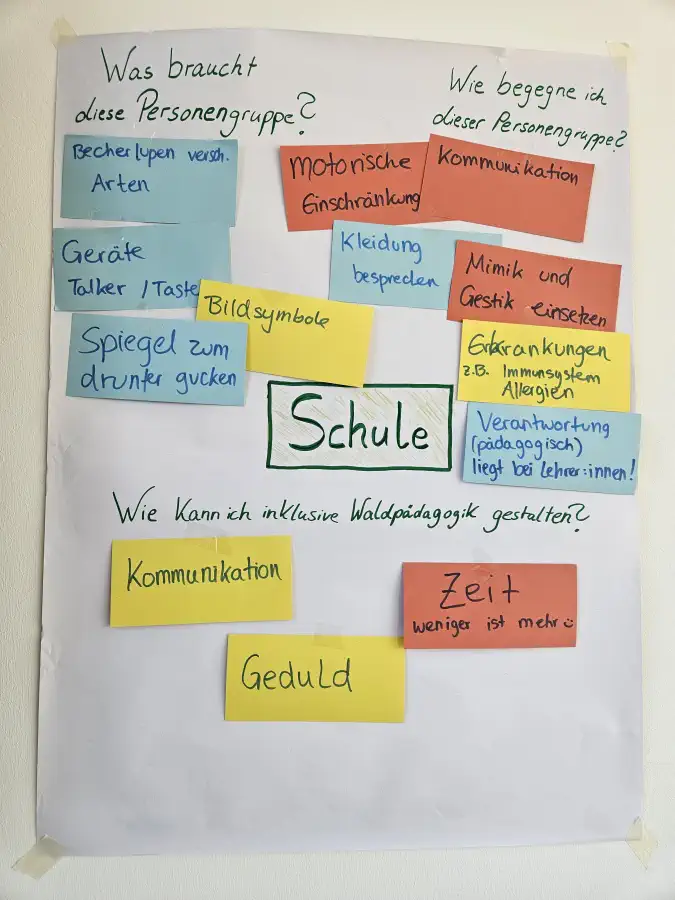 Was braucht
diese Personengruppe?
Becherlupen versch.
Arten
Geräte
Talker / Taste
Bildsymbole
Spiegel zum
drunter gucken
Wie begegne ich
dieser Personengruppe?
Motorische
Einschränkung
Kommunikation
Kleidung
besprechen
Mimik und
Gestik einsetzen
Erkrankungen
z.B. Immunsystem
Allergien
Verantwortung
(pädagogisch)
liegt bei Lehrer:innen!
Schule
Wie kann ich inklusive Waldpädagogik gestalten?
Kommunikation
Zeit
weniger ist mehr
Geduld